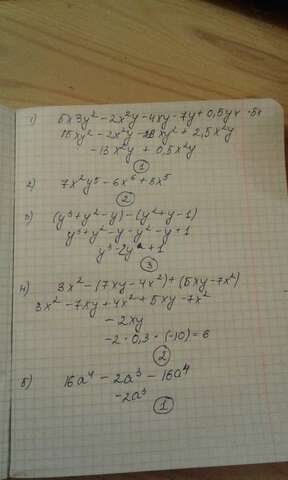 1) 5x3y² - 2x²y - 4xy·7y + 0,5yx·5x
15xy² - 2x²y - 28xy² + 2,5x²y
-13x²y + 0,5x²y
①
2) 7x²y⁵ - 6x⁶ + 8x⁵
②
3) (y³+y²-y)-(y²+y-1)
y³+y²-y-y²-y+1
y³-2y+1
③
4) 3x²-(7xy-4x²)+(5xy-7x²)
3x²-7xy+4x²+5xy-7x²
-2xy
-2·0,3·(-10)=6
②
5) 16a⁴ - 2a³ - 16a⁴
-2a³
①